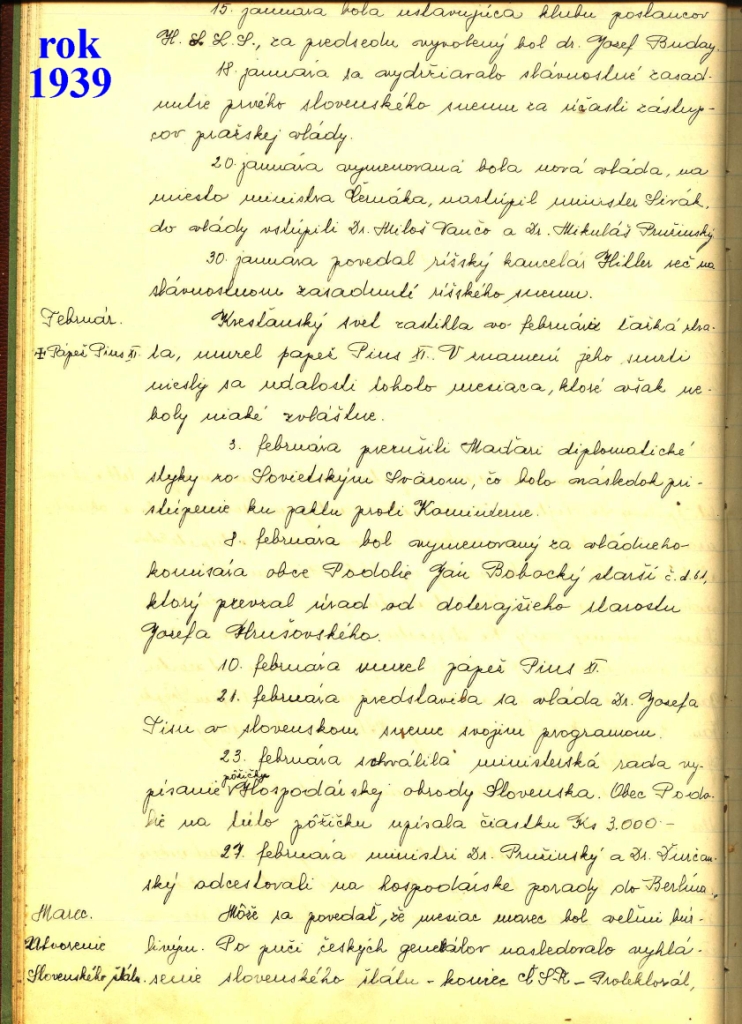 rok
1939
15. januára bola ustavujúca klubu poslancov
H. S. L. S., za predsedu vyvolený bol dr. Jozef Buday.
18. januára sa vydržiavalo slávnostné zasad-
nutie prvého slovenského snemu za účasti zástup-
cov pražskej vlády.
20. januára vymenovaná bola nová vláda, na
miesto ministra Černáka, nastúpil minister Sivák,
do vlády vstúpili Dr. Miloš Vančo a Dr. Mikuláš Pružinský
30. januára povedal ríšský kancelár Hitler reč na
slávnostnom zasadnutí ríšského snemu.
Február.
✠ Pápež Pius XI.
Kresťanský svet zastihla vo februáre ťažká stra-
ta, umrel pápež Pius XI. V znamení jeho smrti
niesly sa udalosti tohoto mesiaca, ktoré však ne-
boly niaké zvláštne.
3. februára prerušili Maďari diplomatické
styky zo Sovietským Sväzom, čo bolo následok pri-
stúpenie ku paktu proti Kominterne.
8. februára bol vymenovaný za vládneho
komisára obce Podolie Ján Bobocký starší č. d. 61,
ktorý prevzal úrad od doterajšieho starostu
Jozefa Hrušovského.
10. februára umrel pápež Pius XI.
21. februára predstavila sa vláda Dr. Jozefa
Tisu v slovenskom sneme svojim programom.
23. februára schválila ministerská rada vy-
písanie pôžičky Hospodárskej obrody Slovenska. Obec Podo-
lie na túto pôžičku upísala čiastku Ks 3.000 –
27. februára ministri Dr. Pružinský a Dr. Ďurčan-
ský odcestovali na hospodárske porady do Berlína.
Marec.
Utvorenie
Slovenského štátu.
Môže sa povedať, že mesiac marec bol veľmi búr-
livým. Po puči českých generálov nasledovalo vyhlá-
senie slovenského štátu – koniec ČSR – Protektorát,